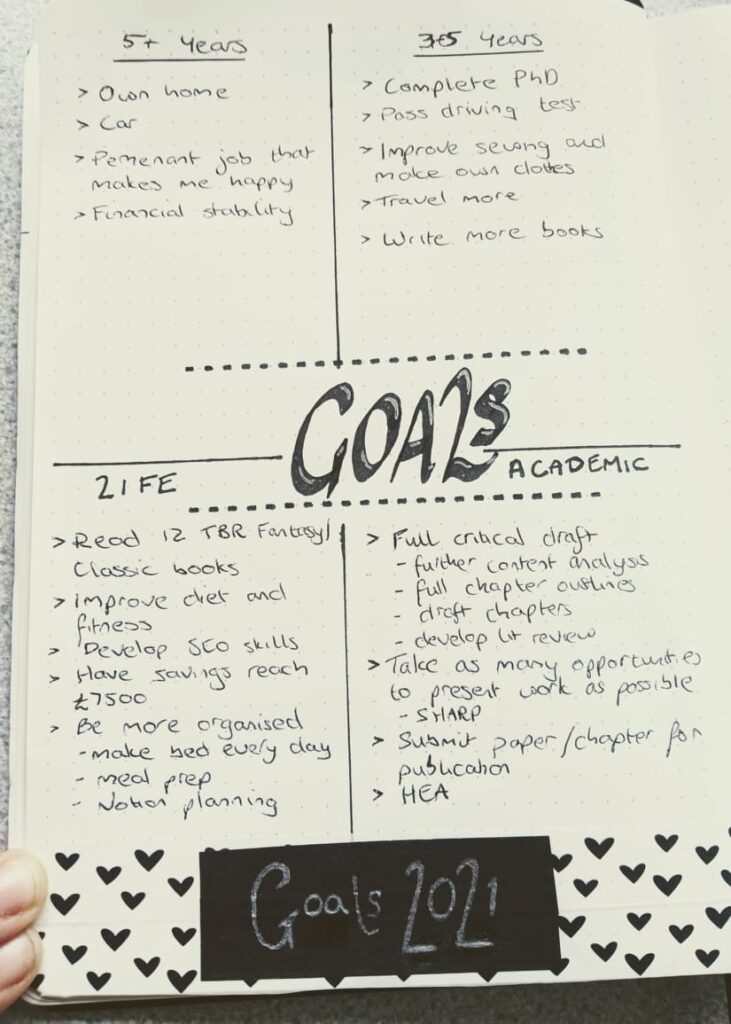 5+ Years
> Own home
> Car
> Pemenant job that
makes me happy
> Financial stability
3+5 Years
> Complete PhD
> Pass driving test
> Improve sewing and
make own clothes
> Travel more
> Write more books
GOALS
LIFE
> Read 12 TBR Fantasy/
Classic books
> improve diet and
fitness
> Develop SEO skills
> Have savings reach
£7500
> Be more organised
- make bed every day
- meal prep
- Notion planning
ACADEMIC
> Full critical draft
- further content analysis
- full chapter outlines
- draft chapters
- develop lit review
> Take as many opportunities
to present work as possible
- SHARP
> Submit paper/chapter for
publication
> HEA
Goals 2021